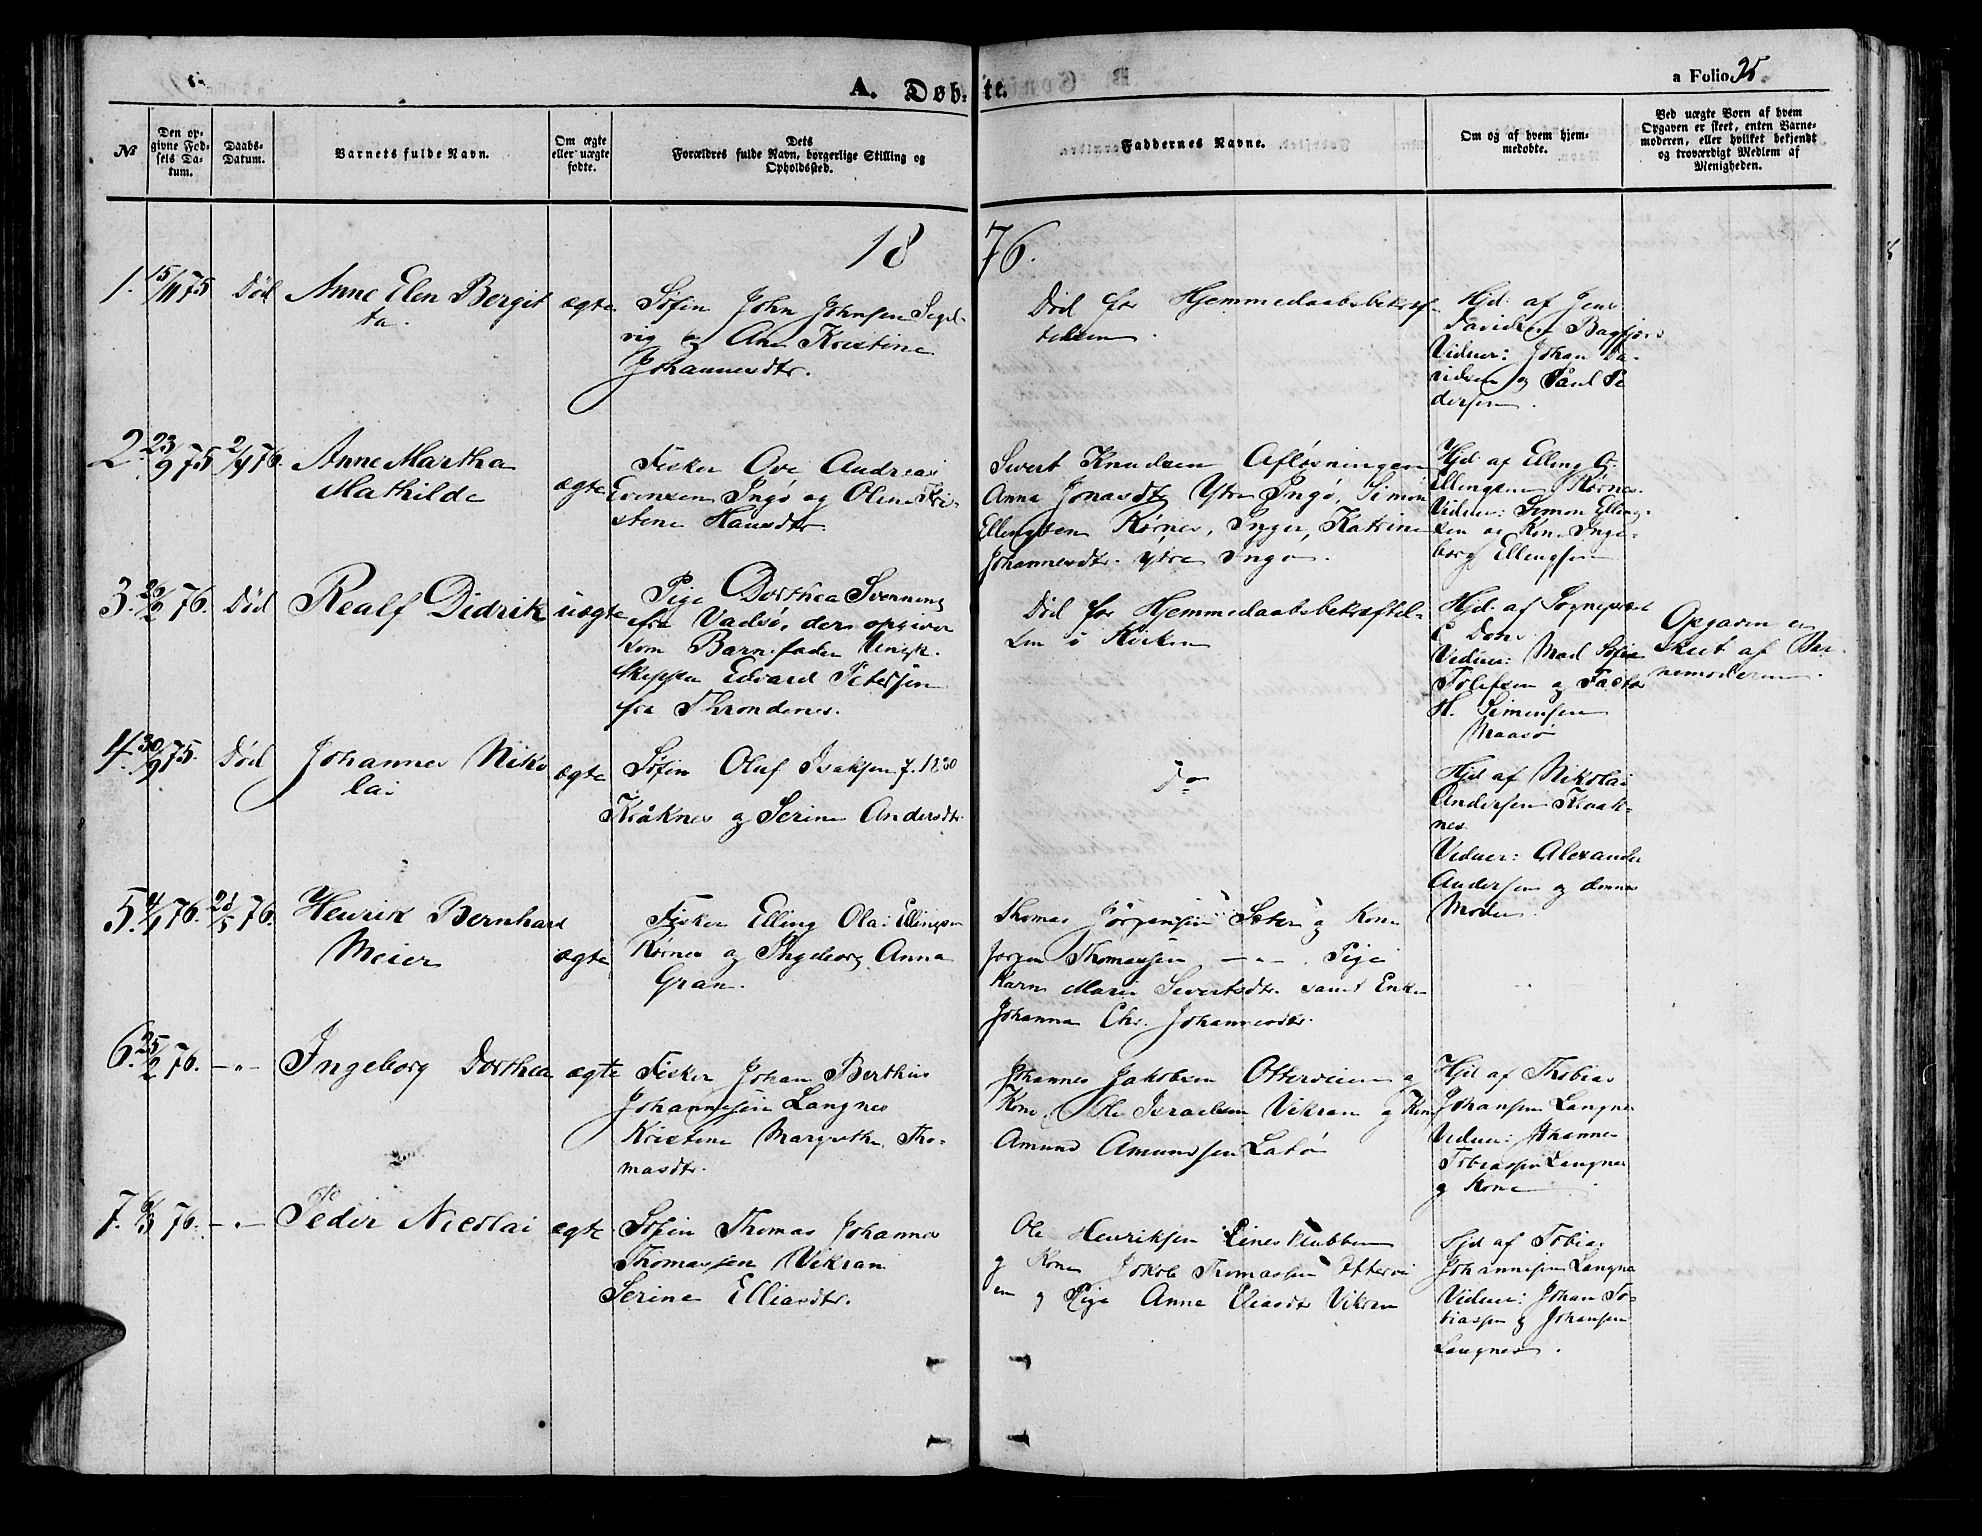 A. Døbte.
a Folio 35
№
Den opgivne Fødsels Datum.
Daabs-Datum.
Barnets fulde Navn.
Om ægte eller uægte fødte.
Dets Forældres fulde Navn, borgerlige Stilling og Opholdssted.
Faddernes Navne.
Om og af hvem hjemmedøbte.
Ved uægte Børn af hvem Opgaven er skeet, enten Barnemoderen, eller hvilket bekjendt og troværdigt Medlem af Menigheden.
1876.
1. 15/11 75 Død Anne Elen Bergit
ta.
ægte
Søfin John Johnsen Segel-
vig og Ane Kristine
Johannesdtr.
Død før Hjemmedaabsbekræf-
telsen.
Hjd. af Jens
Davidsen Bagfjord
Vidner: Johan Da-
vidsen og Paul Pe
dersen.
2. 23/9 75 2/4 76. Anne Martha
Mathilde
ægte
Fisker Ove Andreas
Evensen Ingø og Oline Kri-
stene Hansdtr.
Sivert Knudsen Afløsningen
Anna Jonasdtr Ytre Ingø, Simon
Ellingsen Kørnes, Inger Katrine
Johannesdtr. ytre Ingø.
Hjd. af Elling O.
Ellingsen Kørnes.
Vidner: Simon Elling-
sen og Kone Inge-
borg Ellingsen
3. /2 76. Død Realf Didrik
uægte
Pige Dorthea Svenning
fra Vadsø, der opgiver
som Barnefader
Skipper Edvard Petersen
fra Throndenes.
Død før Hjemmedaabsbekræftel-
sen i Kirken
Hjd. af Sognepræst
C. Dons
Vidner: Mad. Sofia
Tolefsen og Factor
H. Simensen
Maasø
Opgaven er
skeet af Bar-
nemoderen.
4. 30/9 75. Død Johannes Niko
lai
ægte
Søfin Oluf Isaksen f. 1830
Kråknes og Serine Andersdtr.
Do
Hjd af Nikolai
Andersen Kraak-
nes
Vidner: Alexander
Andersen og dennes
Moder.
5. 4/4 76. 28/5 76. Henrik Bernhard
Meier
ægte
Fisker Elling Olai Ellingsen
Kørnes og Ingeborg Anna
Gran.
Thomas Jørgensen Seter og Kone
Jørgen Thomassen —"— Pige
Karn Marie Sivertsdtr. samt Enke
Johanna Chr. Johannesdtr.
6. 25/2 76. —"— Ingeborg Dorthea
ægte
Fisker Johan Berthius
Johannesen Langnes
Kristine Margrethe Tho-
masdtr.
Johannes Jakobsen Otterveien og
Kone, Ole Israelsen Vikran og Kone
Amund Amundsen Latø
Hjd af Thobias
Johansen Langnes
Vidner: Johannes
Tobiassen Langnes
og Kone
7. 6/3 76. —"— Peder Nicolai
ægte
Søfin Thomas Johannes
Thomassen Vikran
Serine Elliasdtr.
Ole Henriksen Lineskubben
og Kone Jakob Thomassen Ottervei
en og Pige Anne Eliasdtr Vikran
Hjd af Tobias
Johannesen Langnes
Vidner: Johan To-
biassen og Johansen
Langnes.